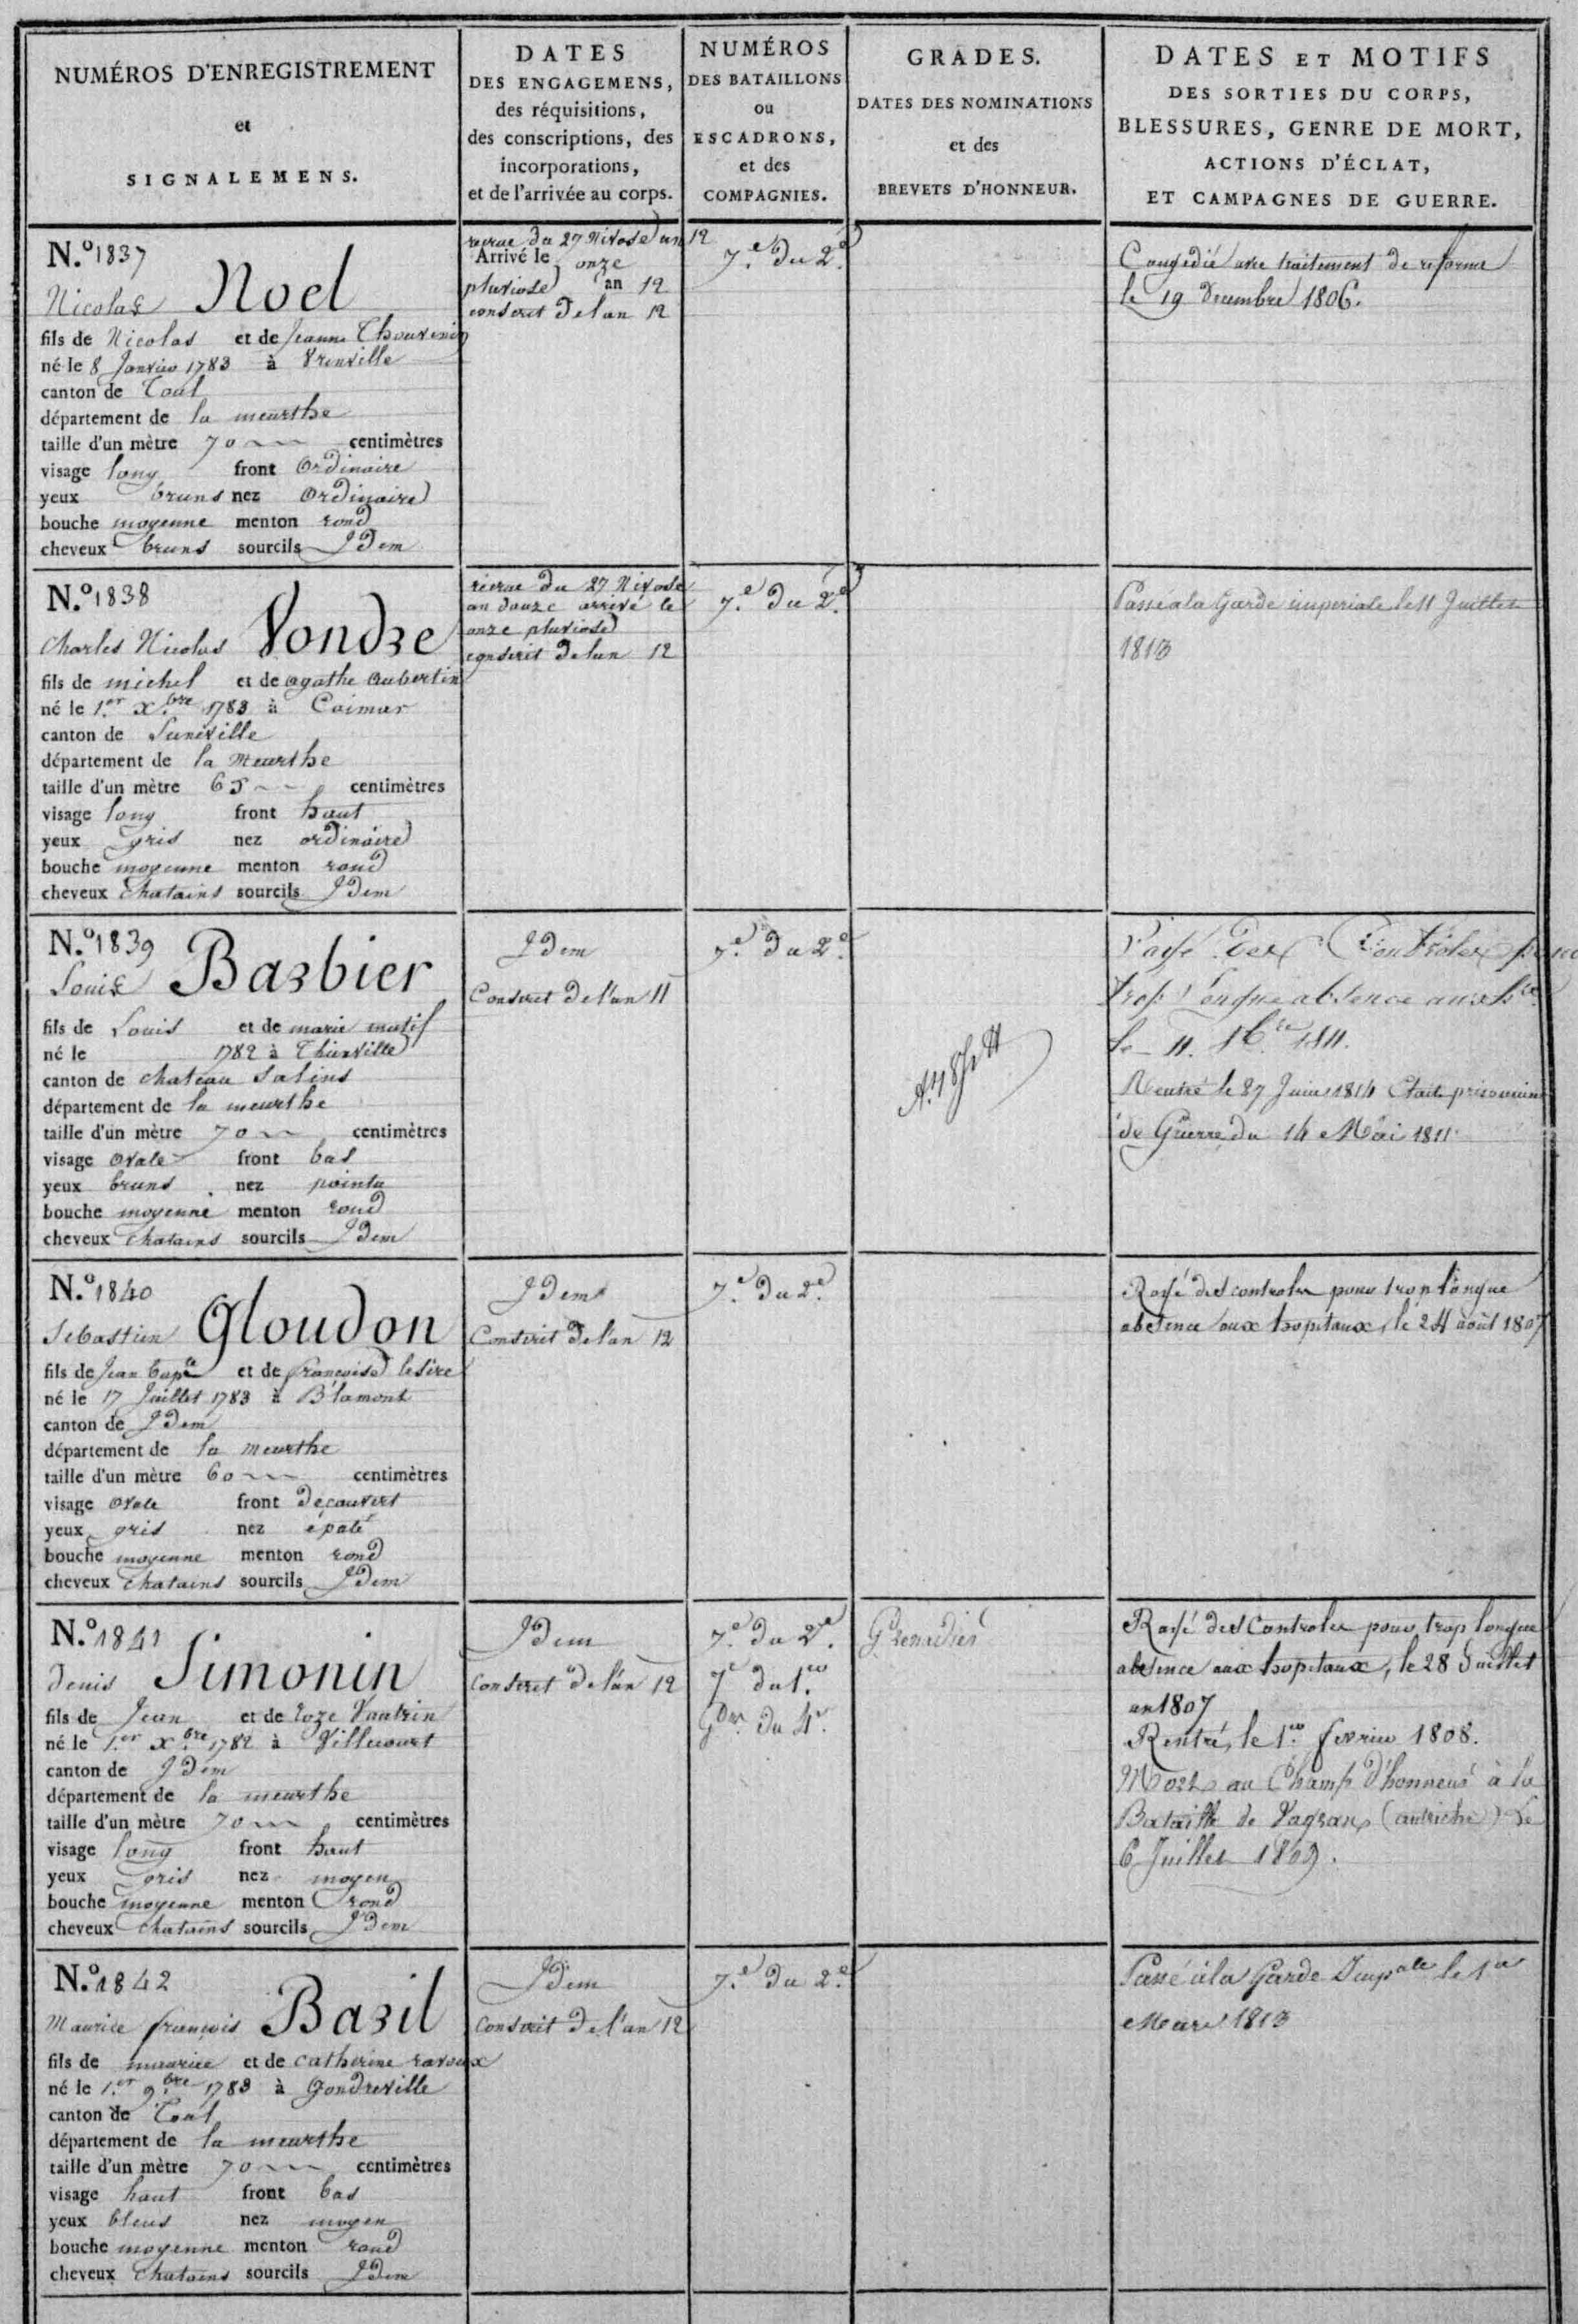 NUMÉROS D'ENREGISTREMENT
et
SIGNALEMENS.
DATES
DES ENGAGEMENS,
des réquisitions,
des conscriptions, des
incorporations,
et de l'arrivée au corps.
NUMÉROS
DES BATAILLONS
ou
ESCADRONS,
et des
COMPAGNIES.
GRADES.
DATES DES NOMINATIONS
et des
BREVETS D'HONNEUR.
DATES ET MOTIFS
DES SORTIES DU CORPS,
BLESSURES, GENRE DE MORT,
ACTIONS D'ÉCLAT,
ET CAMPAGNES DE GUERRE.
N.º 1837
Nicolas Noel
fils de Nicolas et de Jeanne Thouvenin
né le 8 Janvier 1783 à
canton de Toul
département de la meurthe
taille d'un mètre 70 centimètres
visage long front Ordinaire
yeux bruns nez Ordinaire
bouche moyenne menton rond
cheveux bruns sourcils Idem
recrue du 27 Nivose an 12
Arrivé le onze
pluviose an 12
conscrit de l'an 12
7.e du 2.e
Congédié avec traitement de reforme
le 19 Decembre 1806.
N.º 1838
Charles Nicolas Vondre
fils de michel et de agathe Aubertin
né le 1.er X.bre 1783 à
canton de Luneville
département de la Meurthe
taille d'un mètre 65 centimètres
visage long front haut
yeux gris nez ordinaire
bouche moyenne menton rond
cheveux Chatains sourcils Idem
recrue du 27 Nivose
an douze arrivé le
onze pluviose
conscrit de l'an 12
7.e du 2.e
Passé a la Garde imperiale le 11 Juillet
1813
N.º 1839
Louis Barbier
fils de Louis et de marie
né le 1782 à
canton de chateau Salins
département de la meurthe
taille d'un mètre 70 centimètres
visage Ovale front bas
yeux bruns nez pointu
bouche moyenne menton rond
cheveux Chatains sourcils Idem
Idem
Conscrit de l'an 11
7.e du 2.e
Rayé des Controles pour
trop longue absence aux
le 11. 1811.
Rentré le 27 Juin 1814 Etait prisonnier
de Guerre du 14 Mai 1811
N.º 1840
Sebastien Gloudon
fils de Jean Bap.te et de françoise lesire
né le 17 Juillet 1783 à Blamont
canton de Idem
département de la meurthe
taille d'un mètre 60 centimètres
visage Ovale front découvert
yeux gris nez épaté
bouche moyenne menton rond
cheveux Chatains sourcils Idem
Idem
Conscrit de l'an 12
7.e du 2.e
Rayé des controles pour trop longue
absence aux hopitaux, le 24 août 1807
N.º 1841
Denis Simonin
fils de Jean et de Roze Vautrin
né le 1.er X.bre 1782 à Villecourt
canton de Idem
département de la meurthe
taille d'un mètre 70 centimètres
visage long front haut
yeux gris nez moyen
bouche moyenne menton rond
cheveux Chatains sourcils Idem
Idem
Conscrit de l'an 12
7.e du 2.e
7.e du 1.er
G.ers du 4.e
Grenadier
Rayé des Controles pour trop longue
absence aux hopitaux, le 28 Juillet
an 1807
Rentré, le 1.er fevrier 1808.
Mort au Champ d'honneur à la
Bataille de Vagram (autriche) Le
6 Juillet 1809.
N.º 1842
Maurice françois Bazil
fils de maurice et de Catherine ravoux
né le 1.er 9.bre 1783 à Gondreville
canton de Toul
département de la meurthe
taille d'un mètre 70 centimètres
visage haut front bas
yeux bleus nez moyen
bouche moyenne menton rond
cheveux Chatains sourcils Idem
Idem
Conscrit de l'an 12
7.e du 2.e
Passé à la Garde Imp.ale le 1.er
Mars 1813